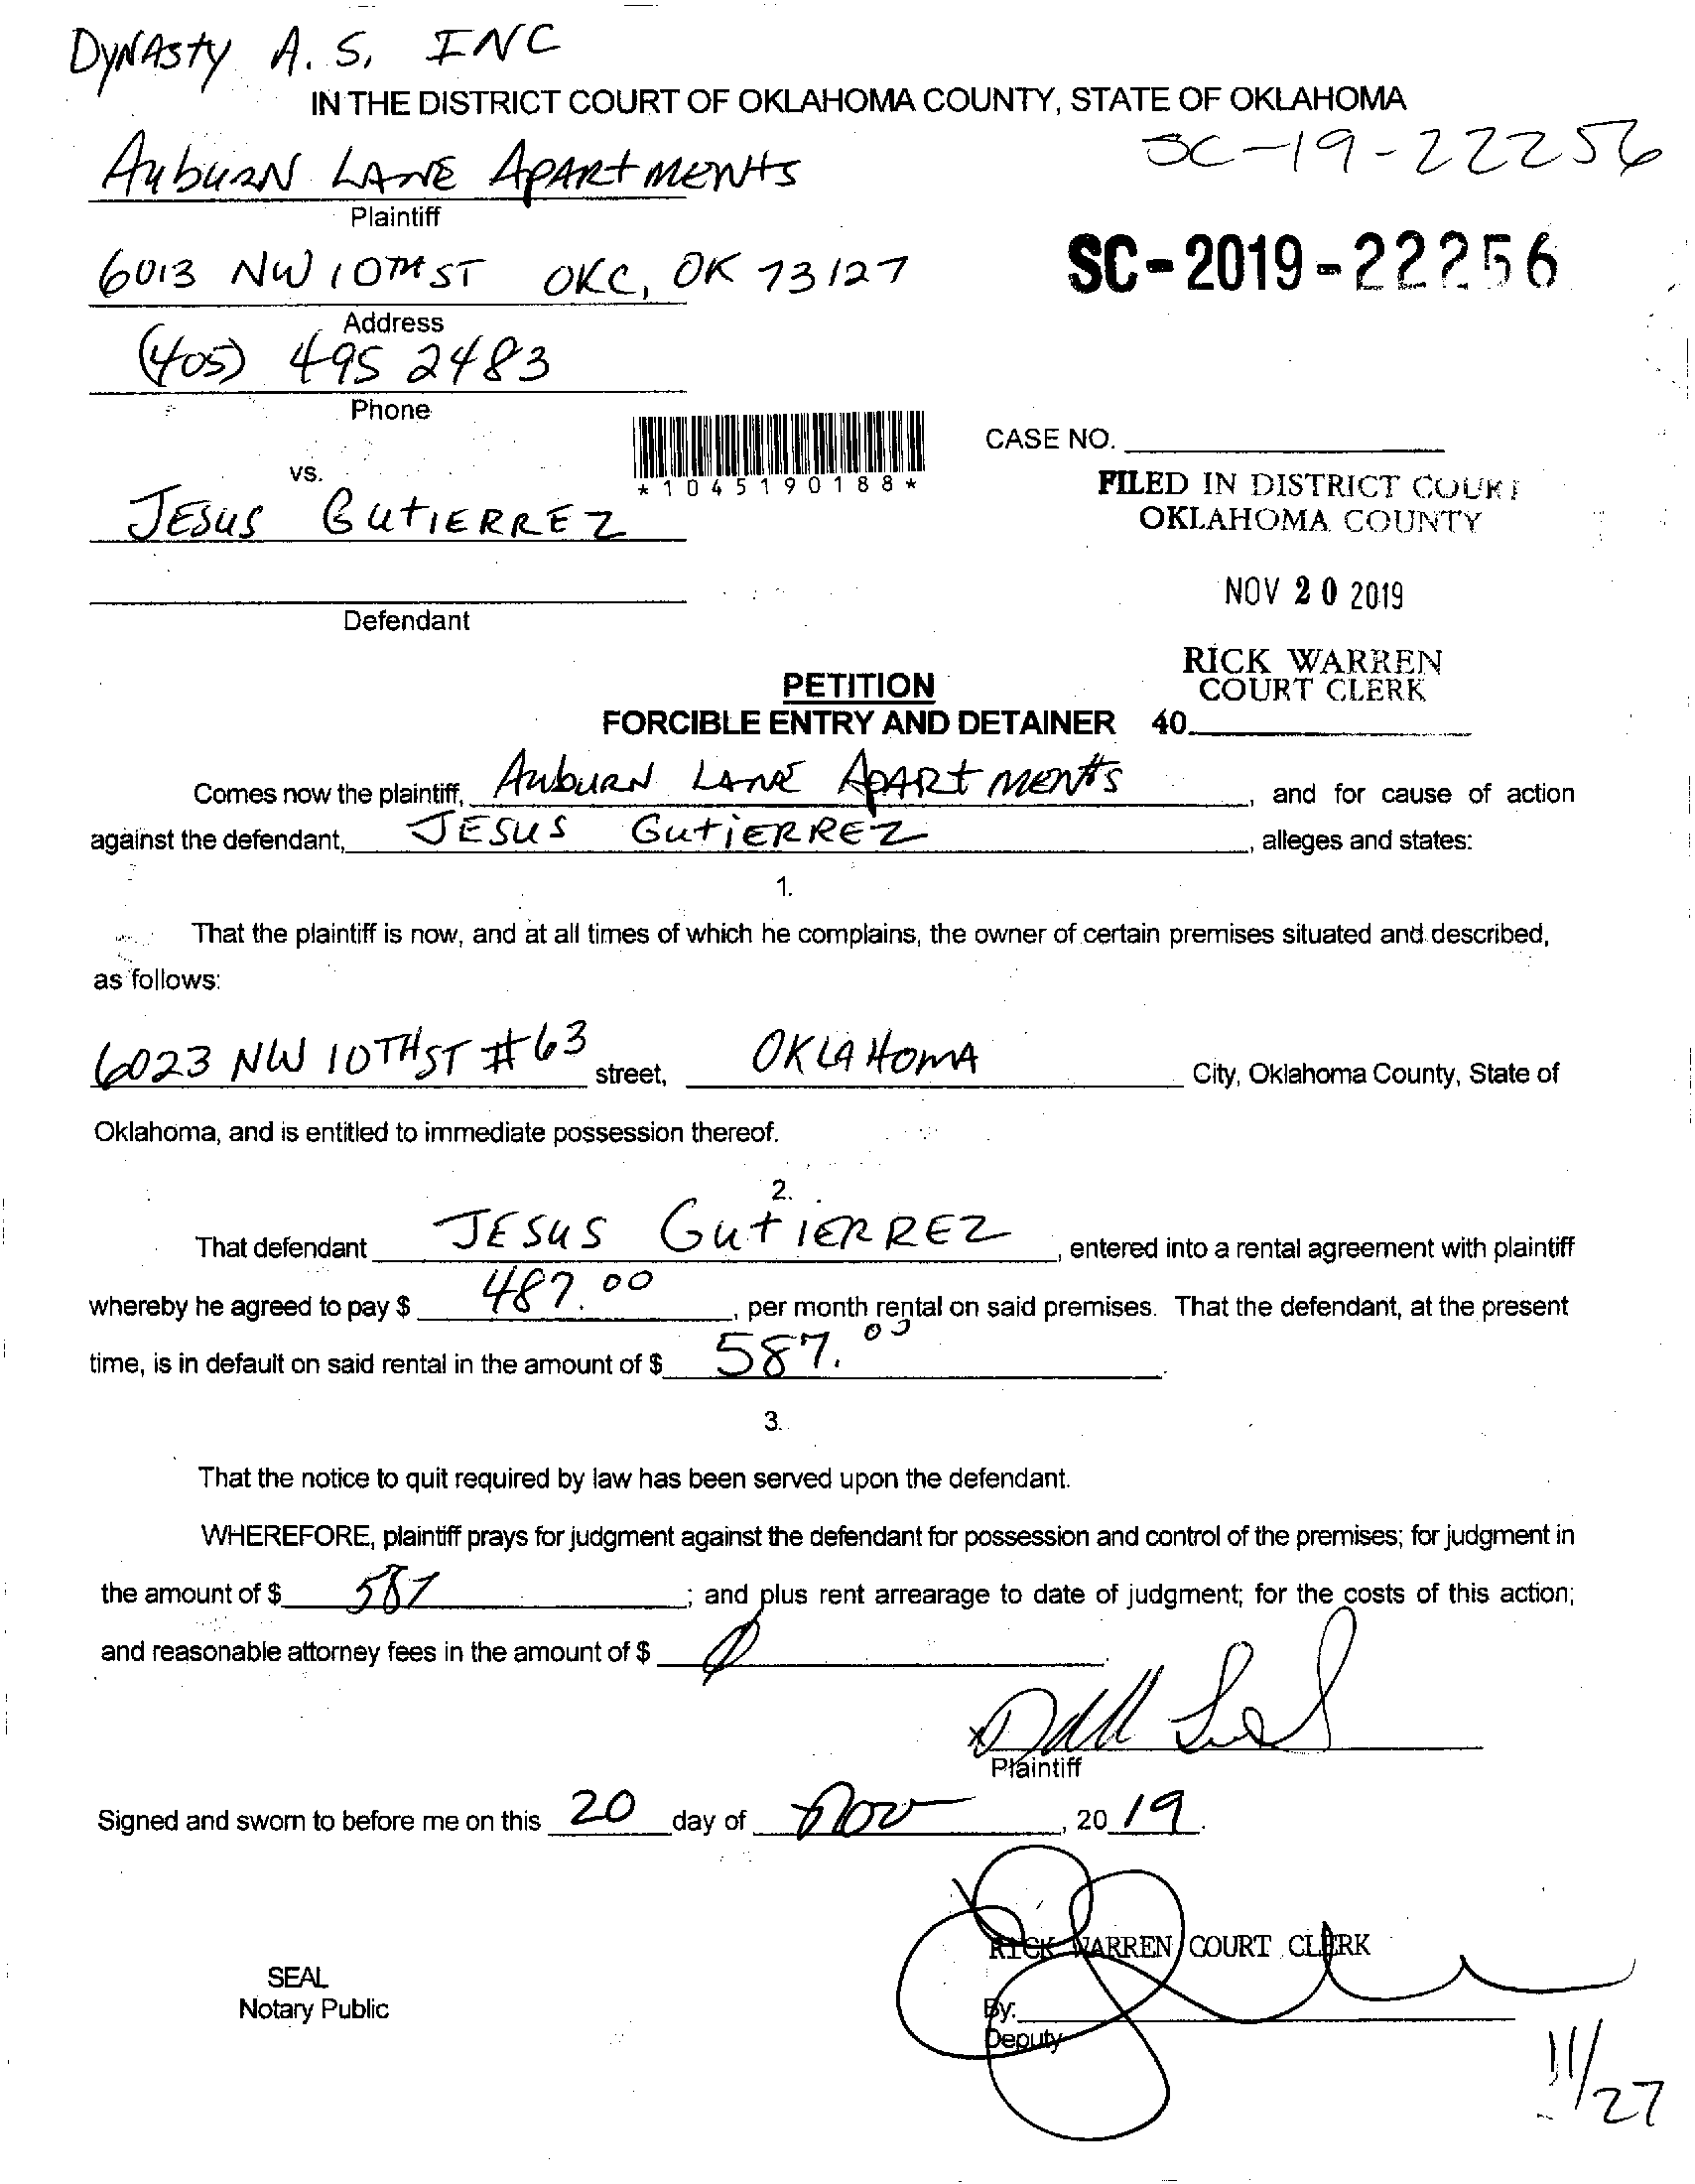 DYNASTY A. S. INC
IN THE DISTRICT COURT OF OKLAHOMA COUNTY, STATE OF OKLAHOMA
SC-19-22256
AUBURN LANE APARTMENTS
Plaintiff
6013 NW 10TH ST OKC, OK 73127
SC-2019-22256
Address
(405) 495 2483
Phone
CASE NO.
vs.
*1045190188*
FILED IN DISTRICT COURT
JESUS GUTIERREZ
OKLAHOMA COUNTY
NOV 20 2019
Defendant
RICK WARREN
PETITION
COURT CLERK
FORCIBLE ENTRY AND DETAINER 40.
Comes now the plaintiff, AUBURN LANE APARTMENTS, and for cause of action
against the defendant, JESUS GUTIERREZ, alleges and states:
1.
That the plaintiff is now, and at all times of which he complains, the owner of certain premises situated and described,
as follows:
6023 NW 10TH ST #63 street, OKLAHOMA City, Oklahoma County, State of
Oklahoma, and is entitled to immediate possession thereof.
2.
That defendant JESUS GUTIERREZ, entered into a rental agreement with plaintiff
whereby he agreed to pay $ 487.00, per month rental on said premises. That the defendant, at the present
time, is in default on said rental in the amount of $ 587.00.
3.
That the notice to quit required by law has been served upon the defendant.
WHEREFORE, plaintiff prays for judgment against the defendant for possession and control of the premises; for judgment in
the amount of $ 587; and plus rent arrearage to date of judgment; for the costs of this action;
and reasonable attorney fees in the amount of $ Ø.
Plaintiff
Signed and sworn to before me on this 20 day of Nov, 20 19.
RICK WARREN COURT CLERK
SEAL
Notary Public
By:
Deputy
11/27